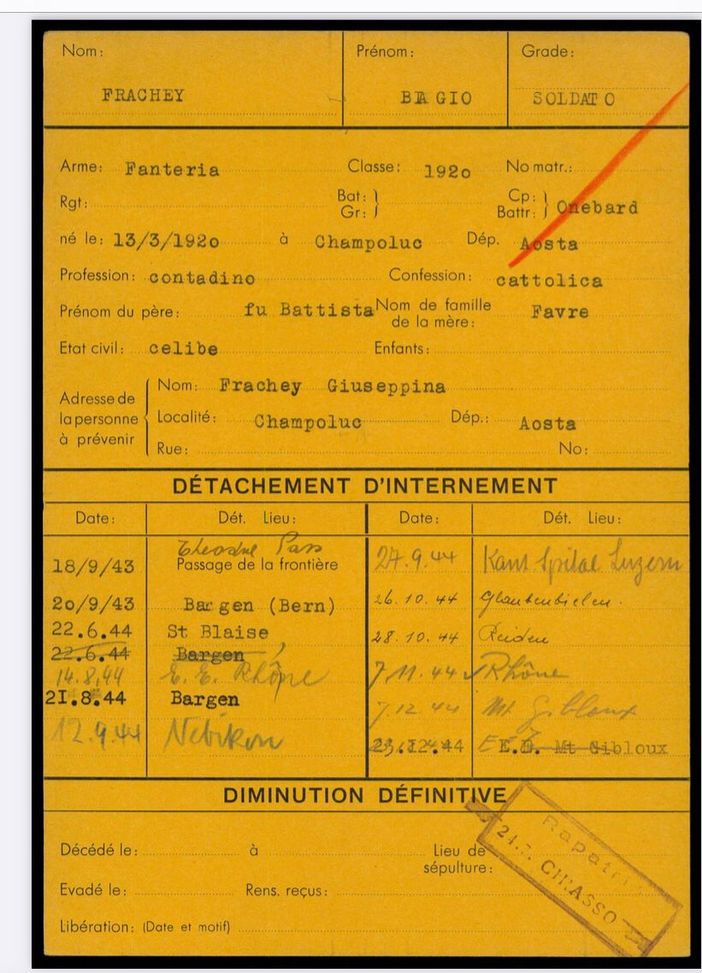 Nom: Prénom: Grade:
FRACHEY BIAGIO SOLDATO
Arme: Fanteria Classe: 1920 No matr.:
Rgt: Bat: Gr: Cp: Battr: Onebard
né le: 13/3/1920 à Champoluc Dép. Aosta
Profession: contadino Confession: cattolica
Prénom du père: fu Battista Nom de famille de la mère: Favre
Etat civil: celibe Enfants:
Adresse de la personne à prévenir
Nom: Frachey Giuseppina
Localité: Champoluc Dép.: Aosta
Rue: No:
DÉTACHEMENT D'INTERNEMENT
Date: Dét. Lieu: Date: Dét. Lieu:
Pass
18/9/43 Passage de la frontière 27.9.44 Kant Spital Luzern
20/9/43 Bargen (Bern) 26.10.44
22.6.44 St Blaise 28.10.44 Reiden
22.6.44 Bargen
14.8.44 E.E. Rhône 7.11.44 Rhône
21.8.44 Bargen 7.12.44 Mt Gibloux
12.9.44 Nebikon 23.12.44 E.D. Mt Gibloux
DIMINUTION DÉFINITIVE
Décédé le: à Lieu de sépulture:
Evadé le: Rens. reçus:
Libération: (Date et motif)
Rapatri
CHIASSO